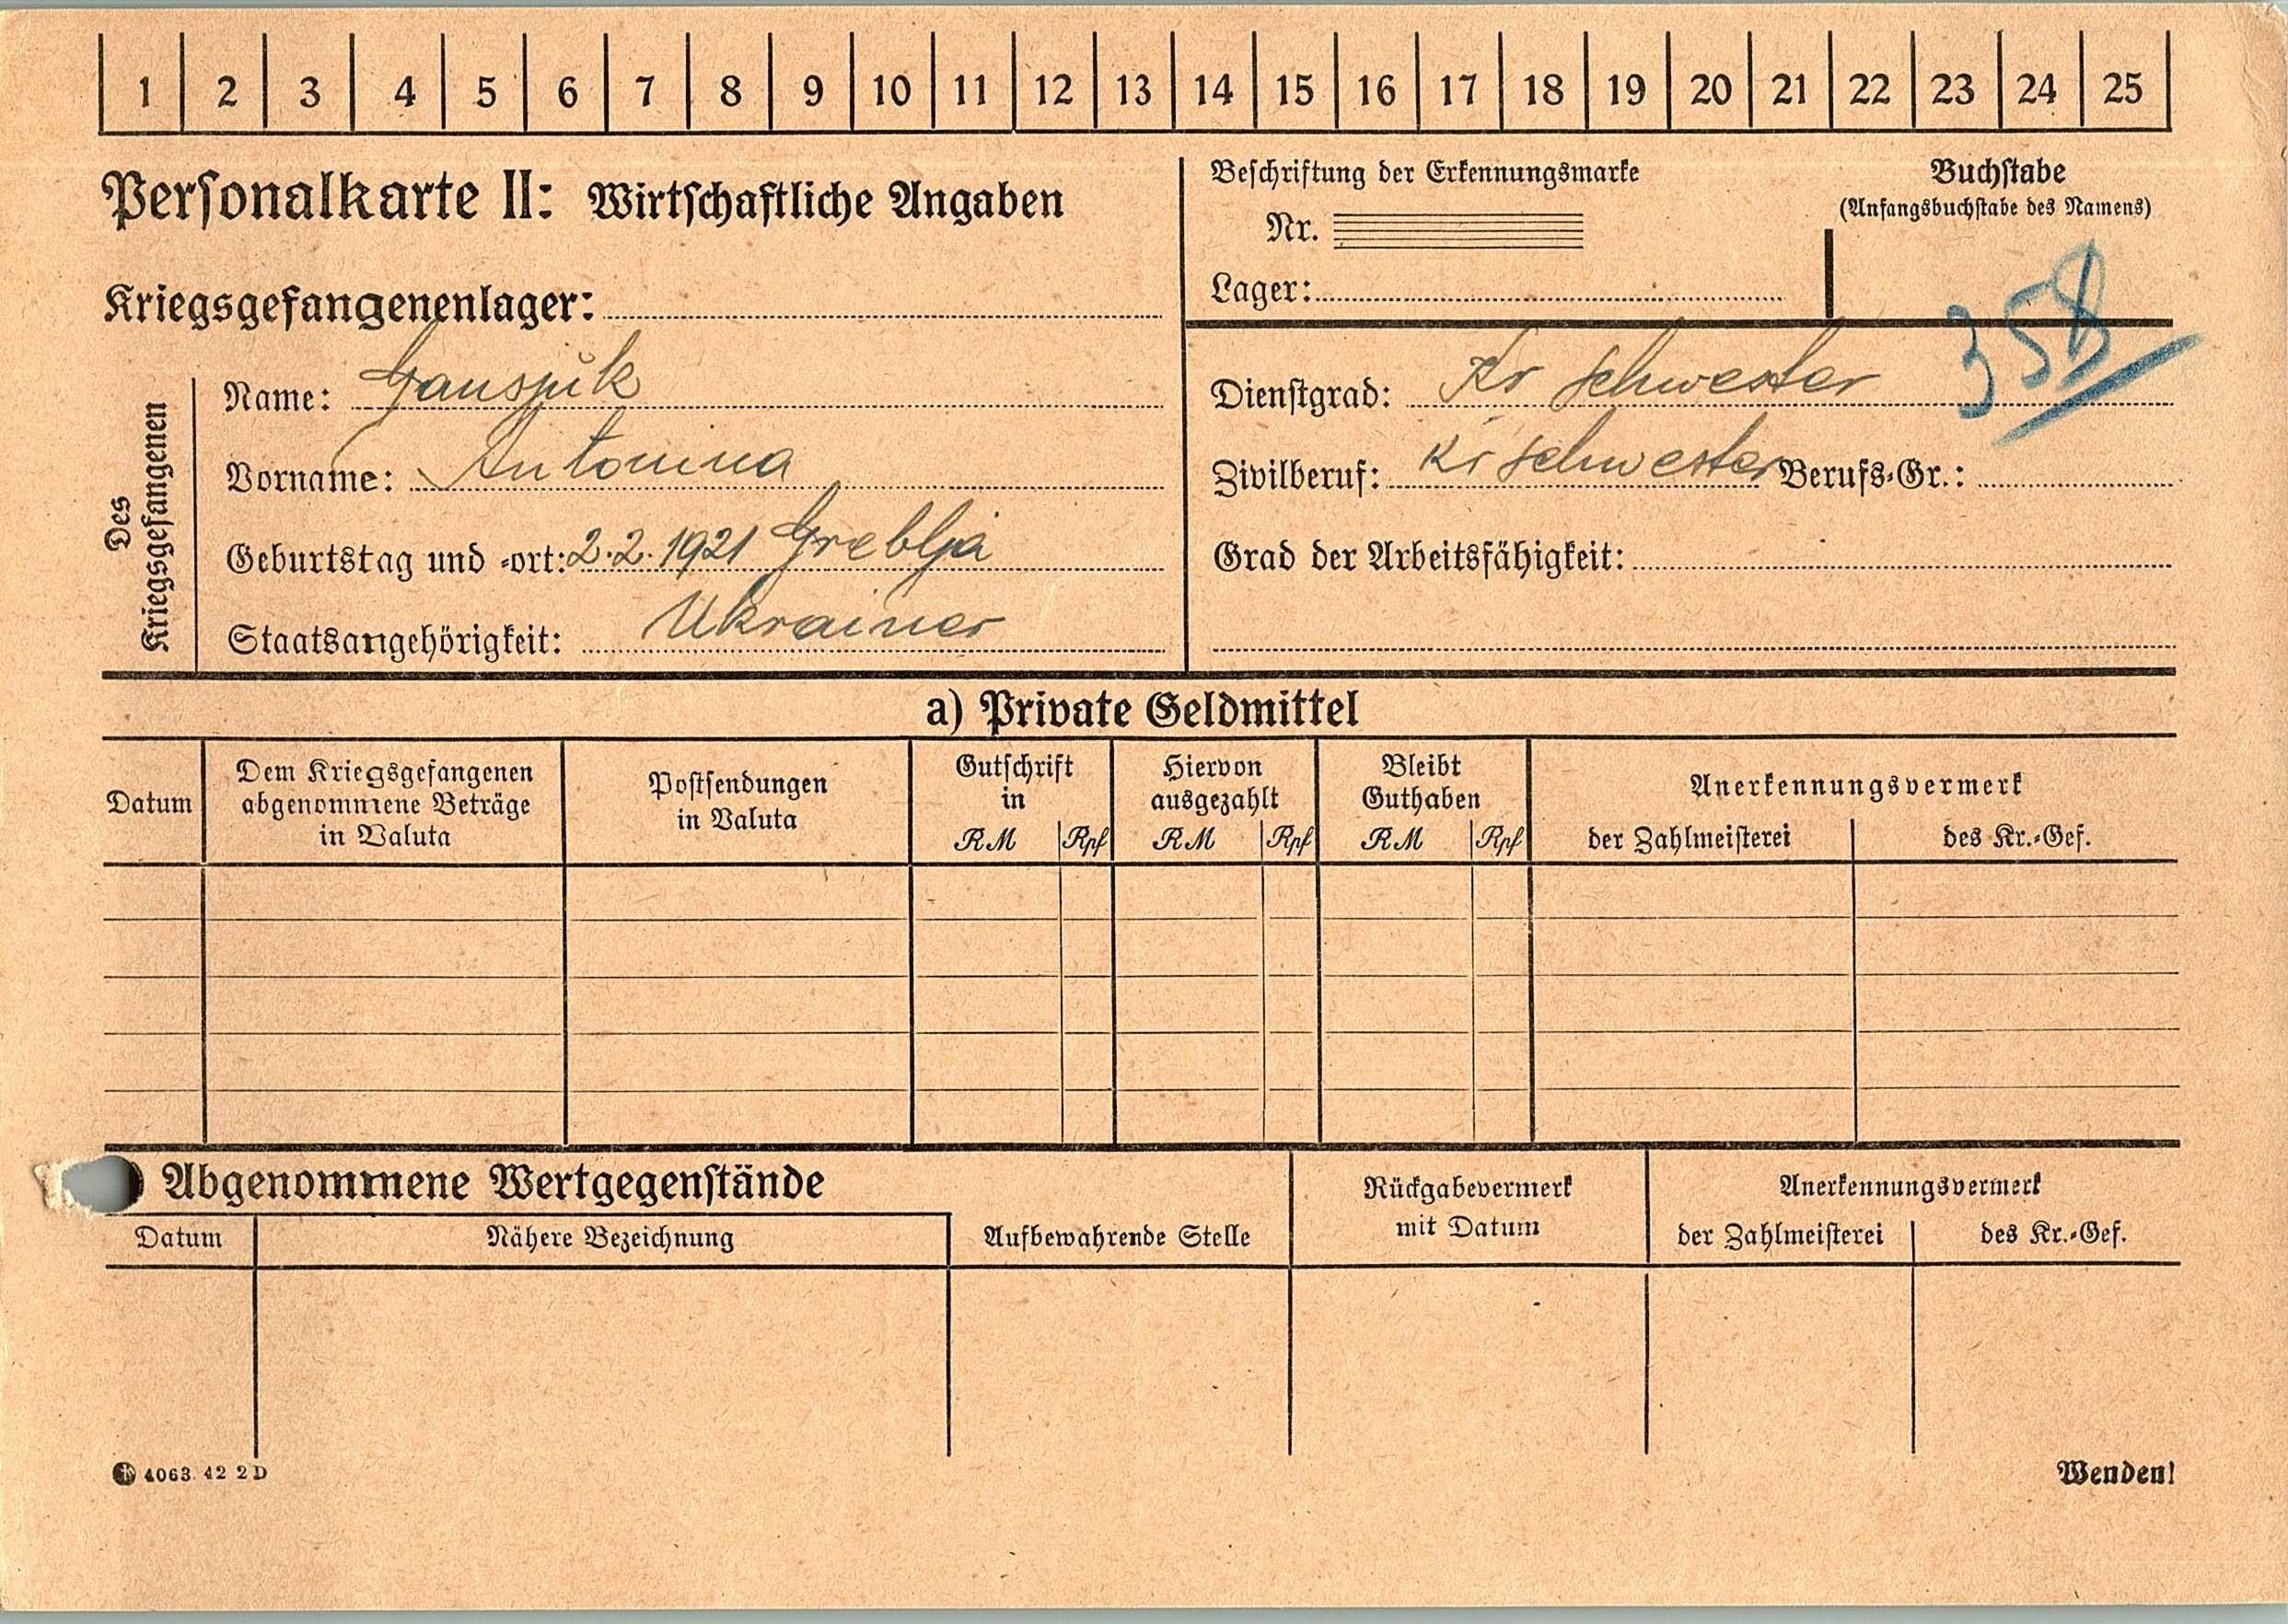 1 2 3 4 5 6 7 8 9 10 11 12 13 14 15 16 17 18 19 20 21 22 23 24 25
Personalkarte II: Wirtschaftliche Angaben
Beschriftung der Erkennungsmarke
Nr.
Lager:
Buchstabe
(Anfangsbuchstabe des Namens)
358
Kriegsgefangenenlager:
Des Kriegsgefangenen
Name: Gauspik
Vorname: Antonina
Geburtstag und -ort: 2.2.1921 Greblja
Staatsangehörigkeit: Ukrainer
Dienstgrad: Kr Schwester
Zivilberuf: Kr Schwester Berufs-Gr.:
Grad der Arbeitsfähigkeit:
a) Private Geldmittel
Datum
Dem Kriegsgefangenen
abgenommene Beträge
in Valuta
Postsendungen
in Valuta
Gutschrift
in
RM Rpf
Hiervon
ausgezahlt
RM Rpf
Bleibt
Guthaben
RM Rpf
Anerkennungsvermerk
der Zahlmeisterei des Kr.-Gef.
) Abgenommene Wertgegenstände
Datum Nähere Bezeichnung Aufbewahrende Stelle
Rückgabevermerk
mit Datum
Anerkennungsvermerk
der Zahlmeisterei des Kr.-Gef.
4063. 42 2 D
Wenden!